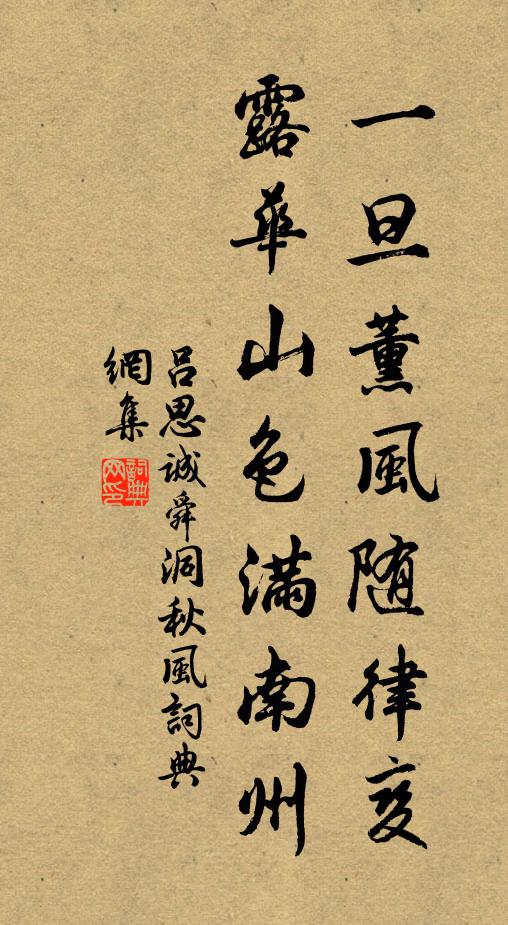 一旦薰風随律变
露華山色滿南州
吕思诚舜洞秋風詞典
網集
詞典
网印